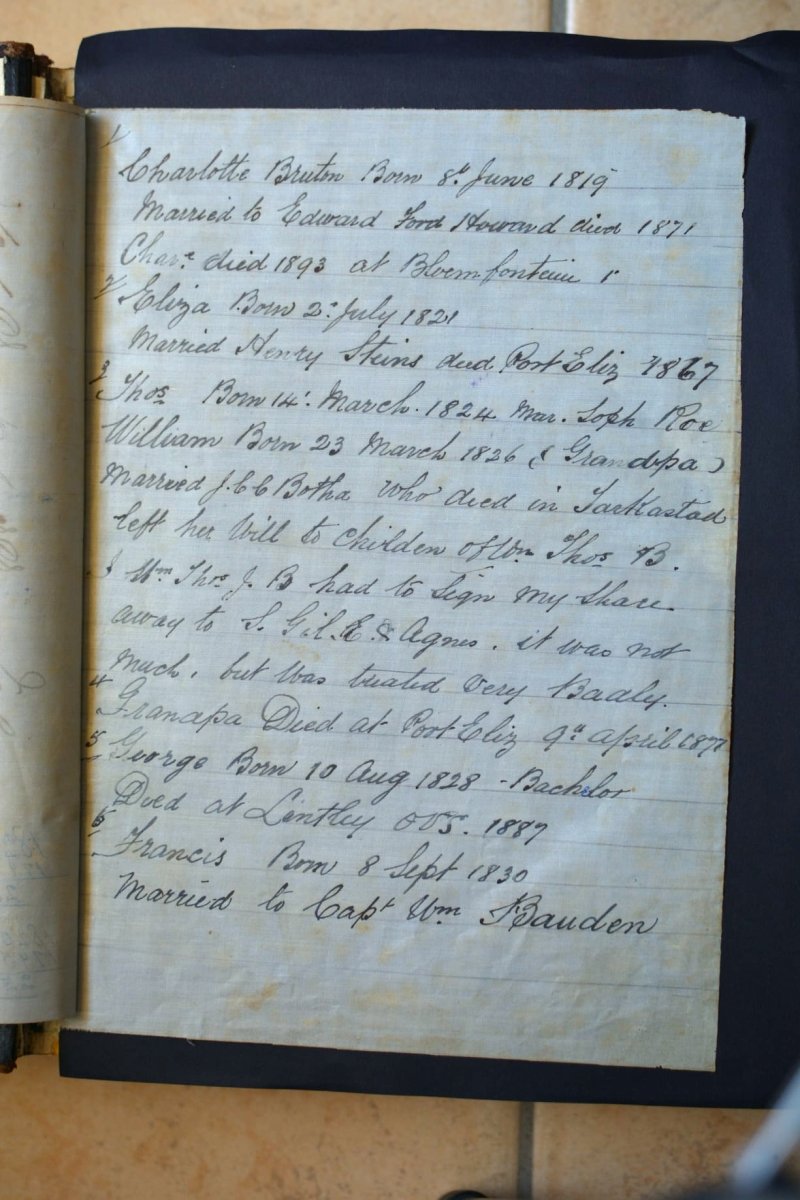 1/
Charlotte Bruton Born 8th June 1819
Married to Edward Ford Howard died 1871
Char.e died 1893 at Bloemfontein
2/ Eliza Born 2: July 1821
Married Henry Steins died Port Eliz 1867
3 Thos Born 14: March. 1824 Mar. Soph Roe
William Born 23 March 1826 (Grandpa)
Married J. C C Botha who died in Tarkastad
left her Will to Childen of Wm Thos B.
I Wm Thos J. B had to Sign my share
away to S. Gil. E. & Agnes. it was not
Much, but was treated very Badly.
4 Grandpa Died at Port Eliz 9th April 1877
5 George Born 10 Aug 1828 - Bachelor
Died at OVS. 1887
6 Francis Born 8 Sept 1830
Married to Capt Wm Bauden